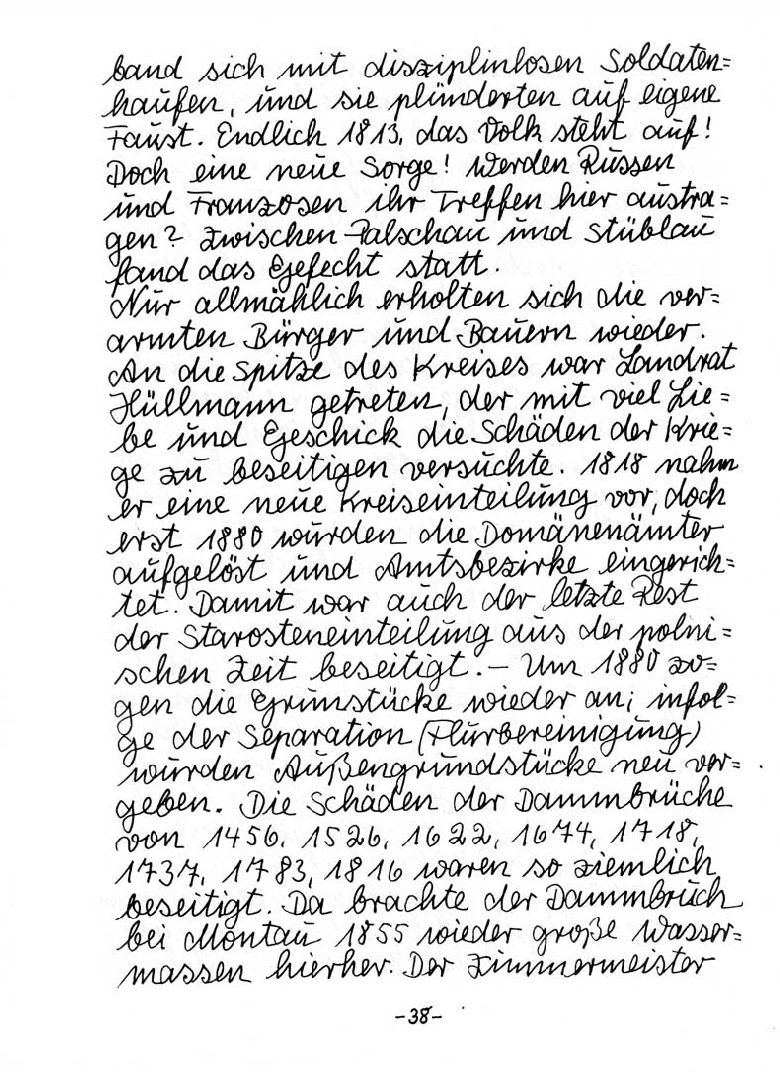 band sich mit disziplinlosen Soldaten=
haufen, und sie plünderten auf eigene
Faust. Endlich 1813, das Volk steht auf!
Doch eine neue Sorge! Werden Russen
und Franzosen ihr Treffen hier austra=
gen? Zwischen Palschau und Stüblau
fand das Gefecht statt.
Nur allmählich erholten sich die ver=
armten Bürger und Bauern wieder.
An die Spitze des Kreises war Landrat
Hüllmann getreten, der mit viel Lie=
be und Geschick die Schäden der Krie=
ge zu beseitigen versuchte. 1818 nahm
er eine neue Kreiseinteilung vor, doch
erst 1880 wurden die Domänenämter
aufgelöst und Amtsbezirke eingerich=
tet. Damit war auch der letzte Rest
der Starosteneinteilung aus der polni=
schen Zeit beseitigt. – Um 1880 zo=
gen die Grunstücke wieder an; infol=
ge der Separation (Flurbereinigung)
wurden Außengrundstücke neu ver=
geben. Die Schäden der Dammbrüche
von 1456, 1526, 1622, 1674, 1718,
1737, 1783, 1816 waren so ziemlich
beseitigt. Da brachte der Dammbruch
bei Montau 1855 wieder große Wasser=
massen hierher. Der Zimmermeister
-38-